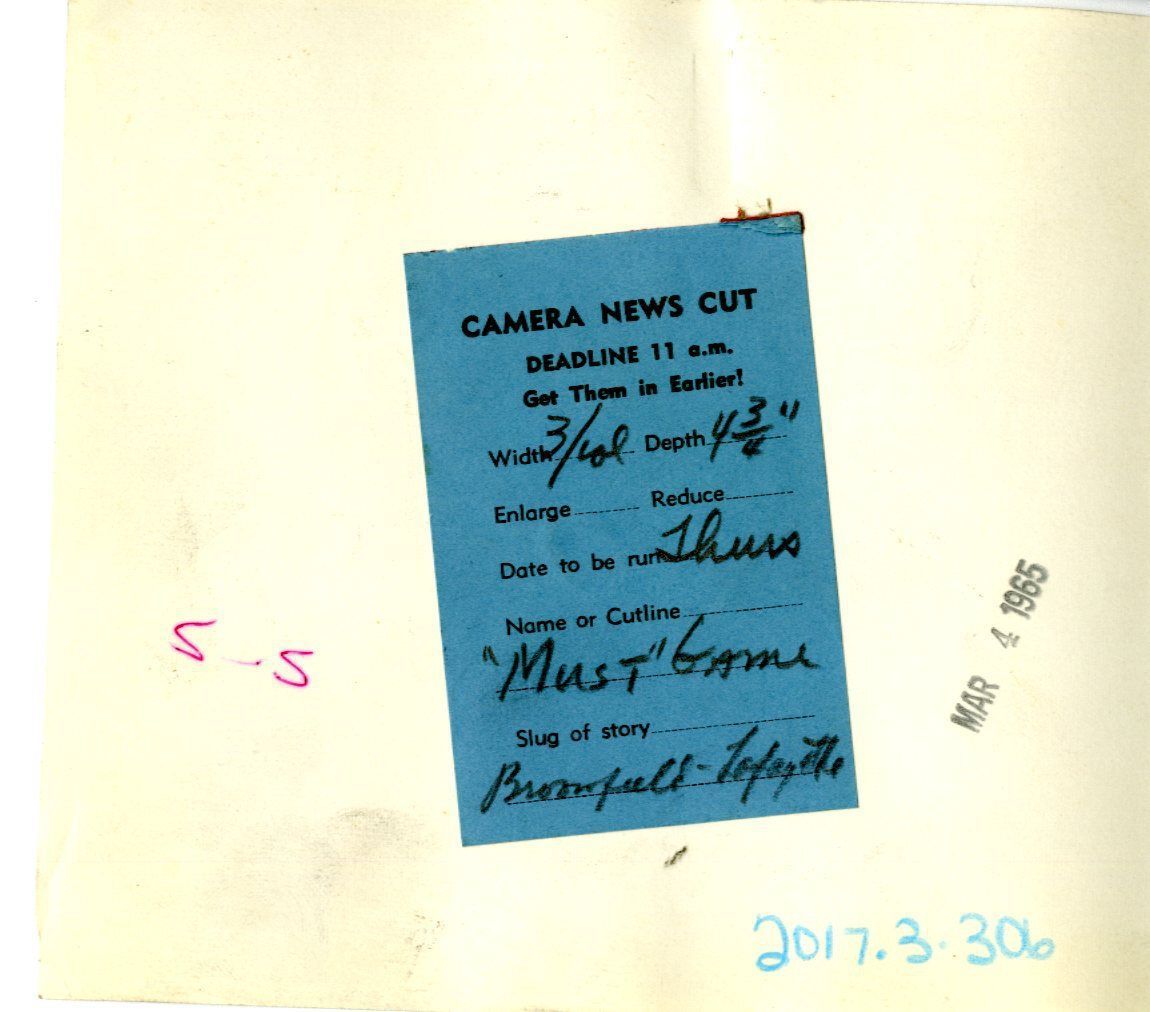 CAMERA NEWS CUT
DEADLINE 11 a.m.
Get Them in Earlier!
Width 3/col Depth 4 3/4"
Enlarge Reduce
Date to be run Thurs
Name or Cutline
"Must" Game
Slug of story
Broomfield - Lafayette
5-5
MAR 4 1965
2017.3.306